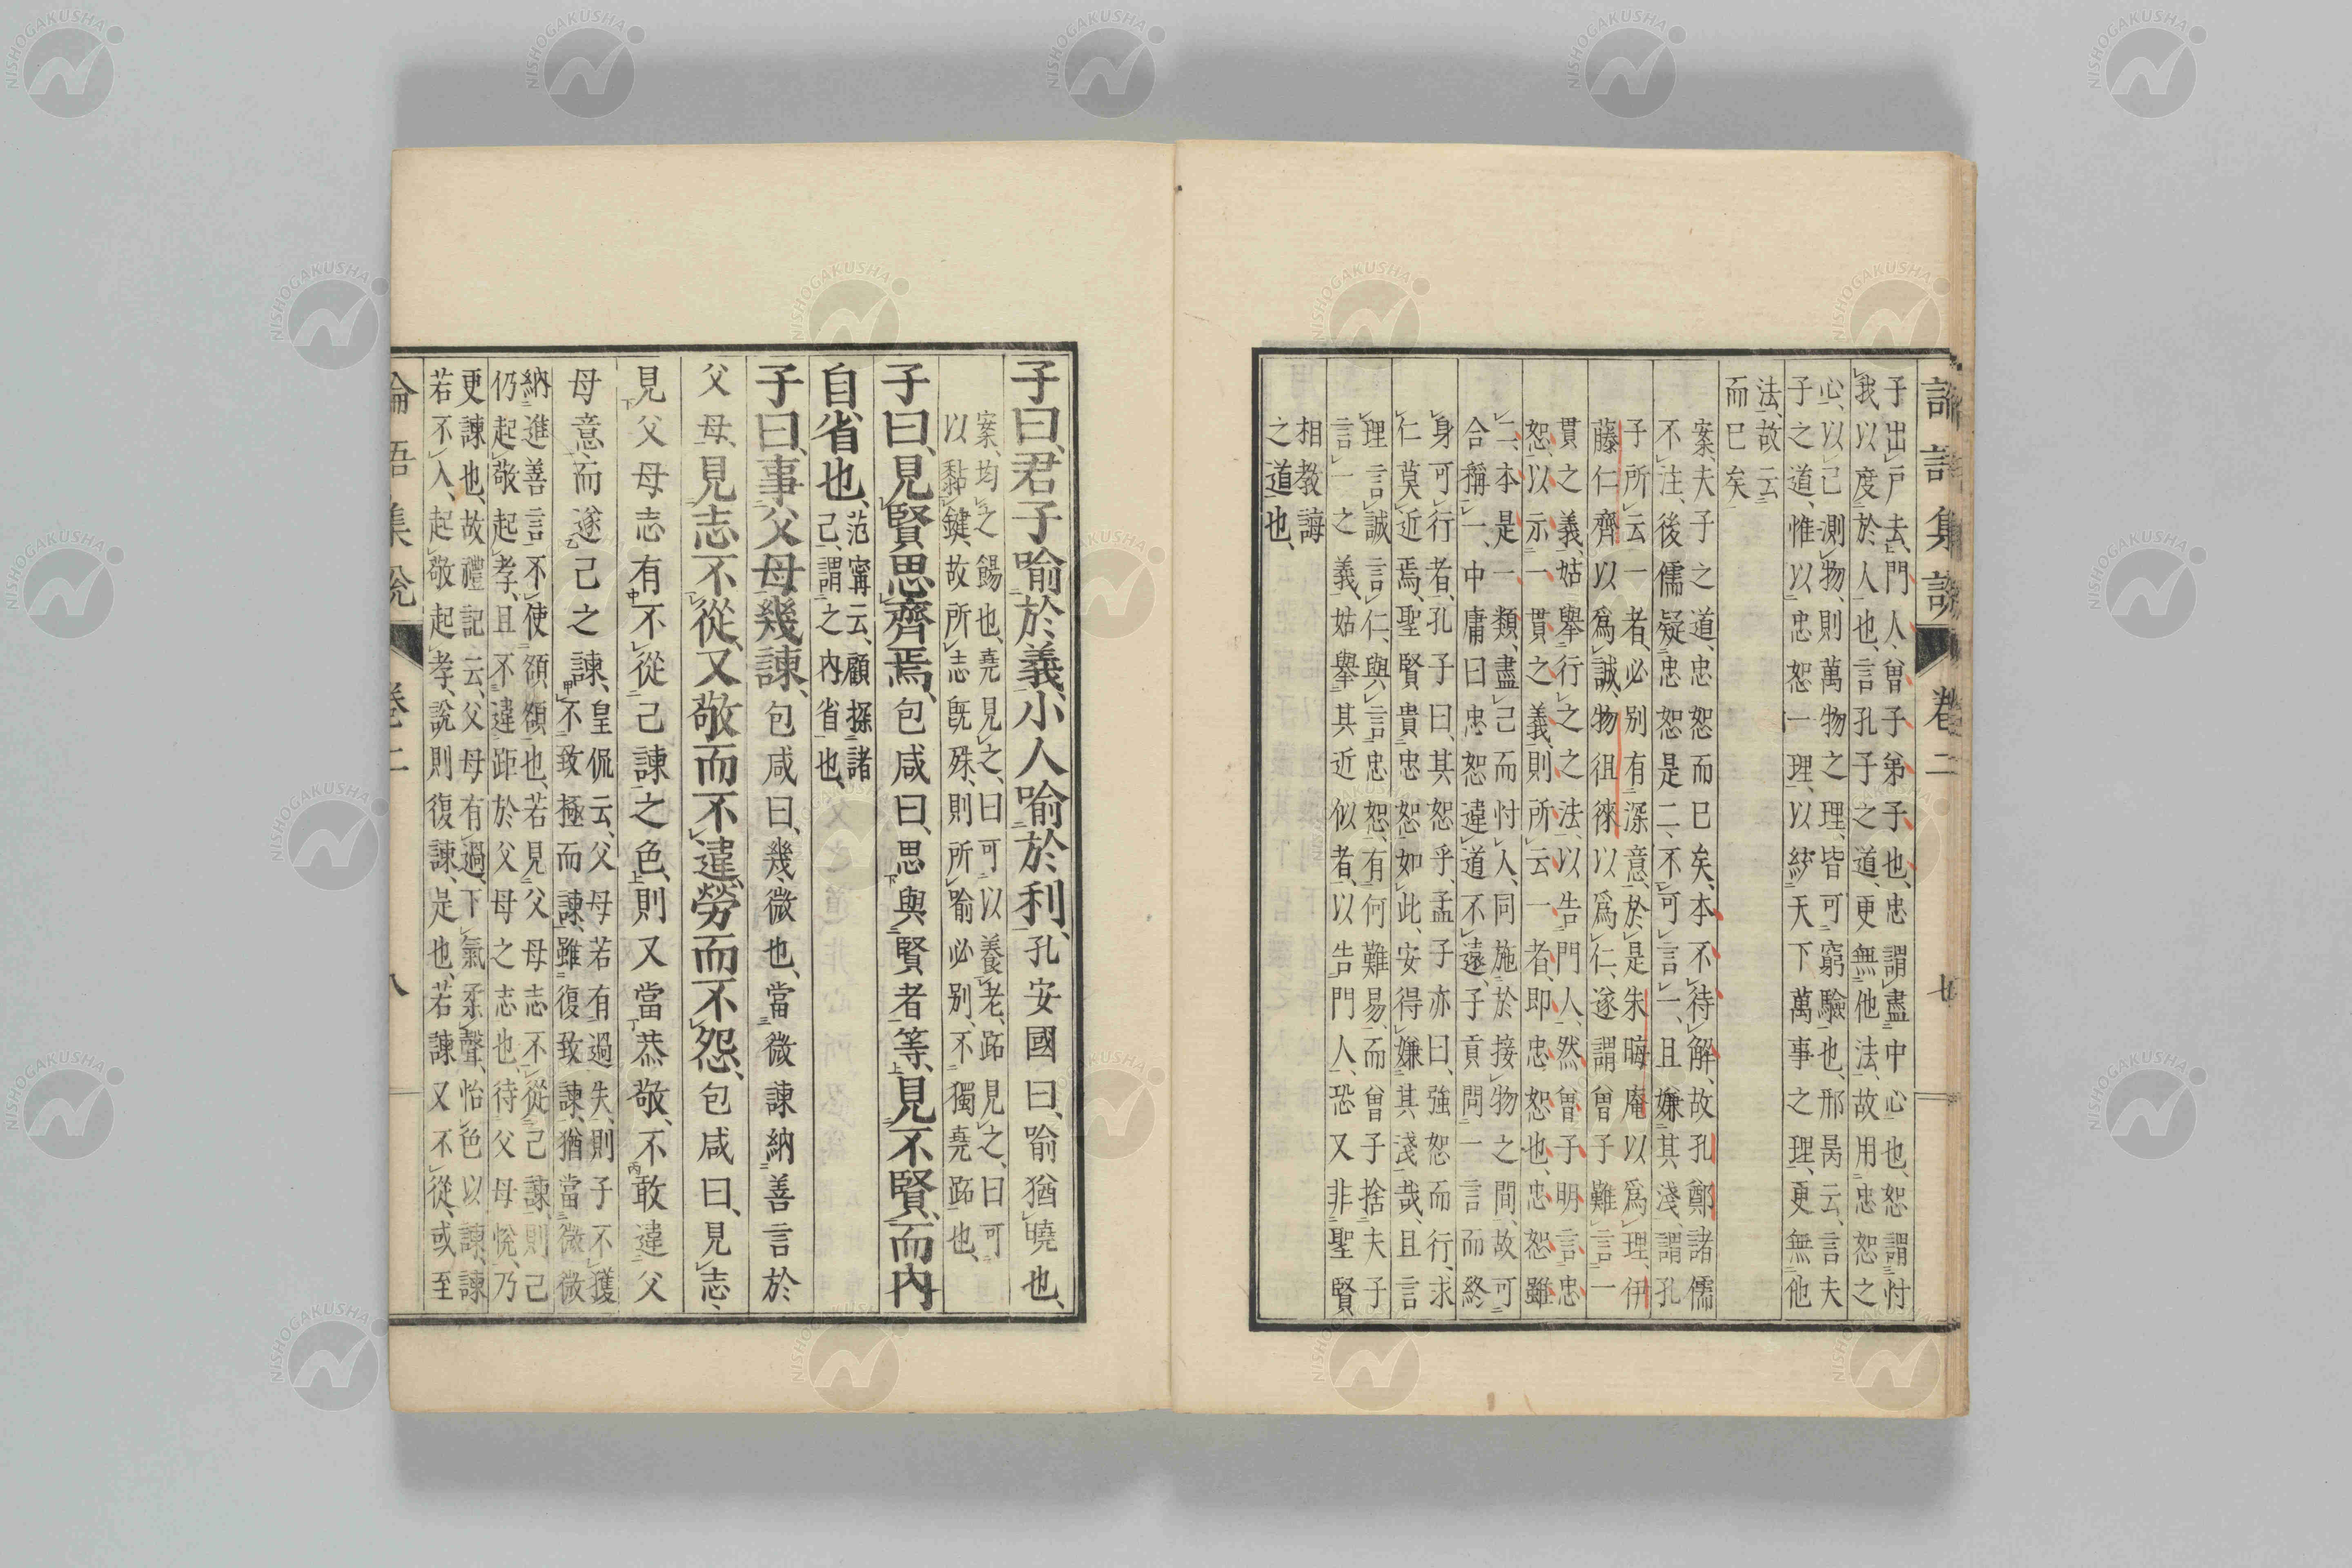 論語集說 卷二 七
子出戶去、門人、曾子弟子也、忠謂盡中心也、恕謂忖
我以度於人也、言孔子之道、更無他法、故用忠恕之
心、以己測物、則萬物之理、皆可窮驗也、邢昺云、言夫
子之道、惟以忠恕一理、以統天下萬事之理、更無他
法、故云
而已矣
案、夫子之道、忠恕而已矣、本不待解、故孔鄭諸儒
不注、後儒疑忠恕是二、不可言一、且嫌其淺、謂孔
子所云一者、必別有深意、於是朱晦庵以爲理、伊
藤仁齊以爲誠、物徂徠以爲仁、遂謂曾子難言一
貫之義、姑舉行之之法、以告門人、然曾子明言忠
恕、以示一貫之義、則所云一者、即忠恕也、忠恕雖
二、本是一類、盡己而忖人、同施於接物之間、故可
合稱一、中庸曰忠恕違道不遠、子貢問一言而終
身可行者、孔子曰、其恕乎、孟子亦曰、強恕而行、求
仁莫近焉、聖賢貴忠恕如此、安得嫌其淺哉、且言
理言誠言仁、與言忠恕、有何難易、而曾子捨夫子
言一之義、姑舉其近似者、以告門人、恐又非聖賢
相教誨
之道也、
子曰、君子喻於義、小人喻於利、孔安國曰、喻猶曉也、
案、均之餳也、堯見之、曰可以養老、跖見之、曰可
以黏鍵、故所志既殊、則所喻必別、不獨堯跖也、
子曰、見賢思齊焉、包咸曰、思與賢者等、見不賢、而內
自省也、范甯云、顧探諸
己、謂之內省也、
子曰、事父母幾諫、包咸曰、幾、微也、當微諫納善言於
父母、見志不從、又敬而不違、勞而不怨、包咸曰、見志、
見父母志有不從己諫之色、則又當恭敬、不敢違父
母意、而遂己之諫、皇侃云、父母若有過失、則子不獲
不致極而諫、雖復致諫、猶當微微
納進善言、不使額額也、若見父母志不從己諫、則己
仍起敬起孝、且不違距於父母之志也、待父母悅、乃
更諫也、故禮記云、父母有過、下氣柔聲、怡色以諫、諫
若不入、起敬起孝、說則復諫、是也、若諫又不從、或至
論語集說 卷二 八
NISHOGAKUSHA